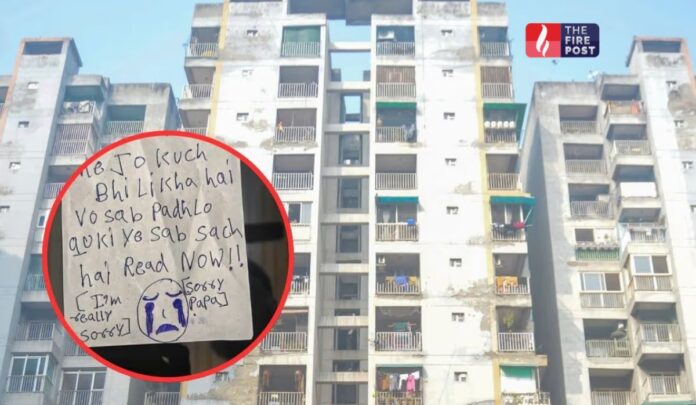 THE
FIRE
POST
me Jo kuch
Bhi Likha hai
vo sab Padhlo
quki ye sab sach
hai Read NOW!!
[ I'm really sorry]
[Sorry Papa]